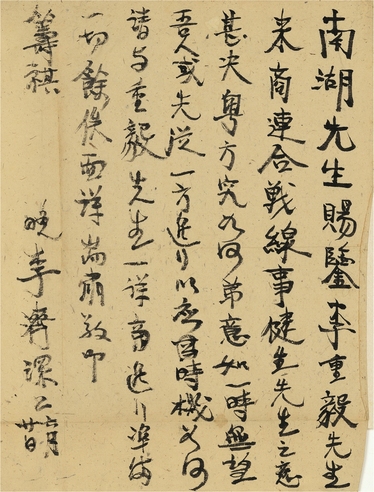 南湖先生賜鑒李重毅先生
来商連合戰線事健生先生之意
甚决粤方究如何弟意如一時無望
吾人或先從一方進行以應時機如何
請与重毅先生一詳商進行準備
一切餘俟面詳耑肅敬叩
籌祺
晚李濟深上 六月廿日